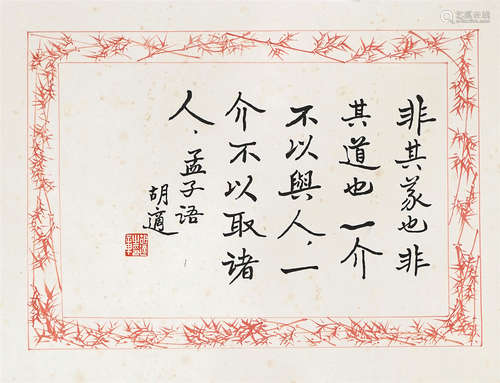 非其义也非
其道也一介
不以與人，一
介不以取諸
人，孟子語
胡適